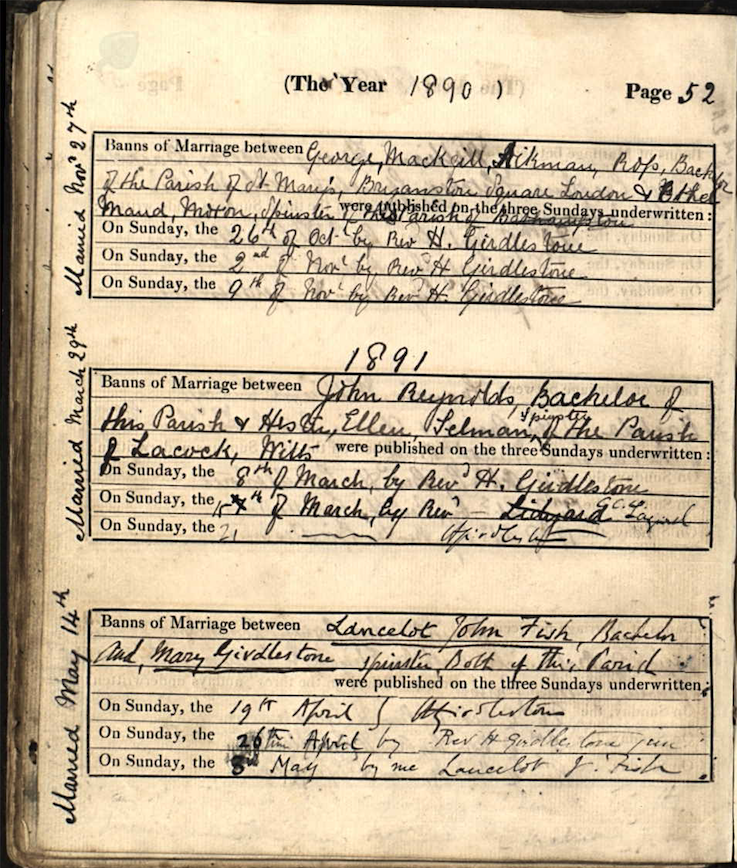 (The Year 1890 )
Page 52
Married Nov.r 27th
Banns of Marriage between George, Mackgill, Aikman, Ross, Bachelor
of the Parish of St Mary's, Bryanston Square London & Ethel
Maud, Spinster of this Parish of were published on the three Sundays underwritten:
On Sunday, the 26th of Oct.r by Rev H. Girdlestone
On Sunday, the 2nd of Nov.r by Rev.d H Girdlestone
On Sunday, the 9th of Nov.r by Rev. H. Girdlestone
1891
Married March 29th
Banns of Marriage between John Reynolds, Bachelor of
this Parish & Hester, Ellen, Selman, Spinster of the Parish
of Lacock, Wilts were published on the three Sundays underwritten:
On Sunday, the 8th of March, by Rev.d H. Girdlestone
On Sunday, the 15th of March, by Rev.d
On Sunday, the 21
Married May 14th
Banns of Marriage between Lancelot John Fish, Bachelor
and, Mary Girdlestone spinster, Both of this Parish
were published on the three Sundays underwritten:
On Sunday, the 19th April H Girdlestone
On Sunday, the 26th April by Rev H Girdlestone jun
On Sunday, the 3rd May by me Lancelot J. Fish